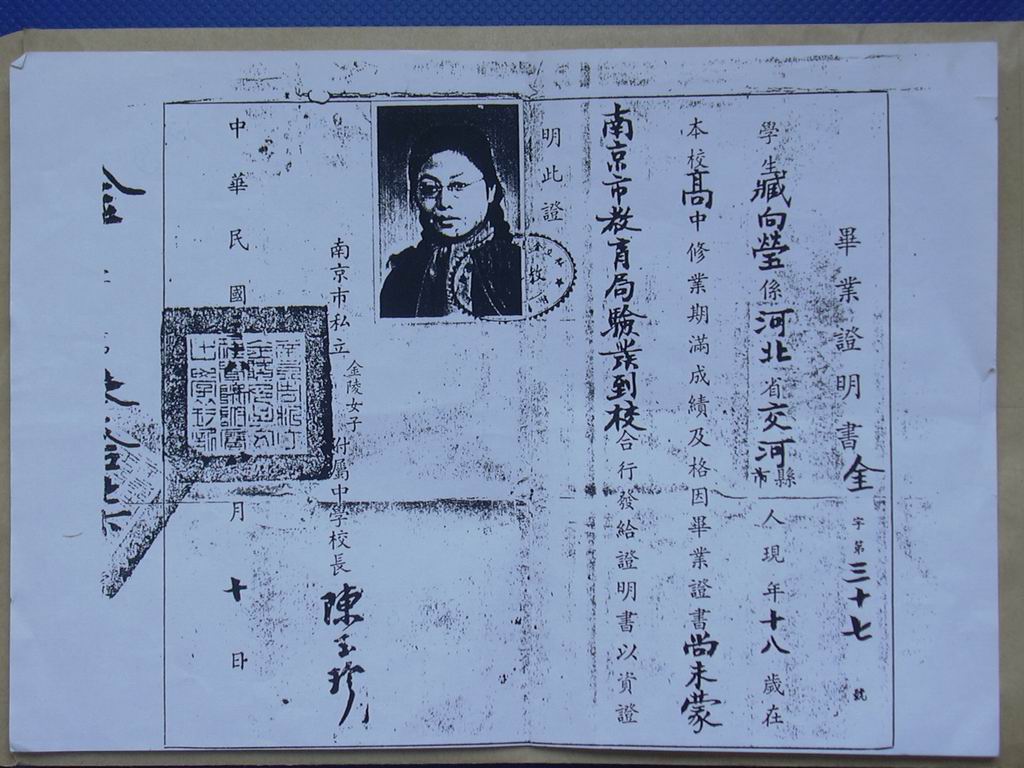 畢業證明書 金字第三十七號
學生臧向瑩係河北省交河市縣人現年十八歲在
本校高中修業期滿成績及格因畢業證書尚未蒙
南京市教育局驗發到校合行發給證明書以資證
明此證
南京市私立金陵女子附屬中學校長 陳玉珍
中華民國 月十日